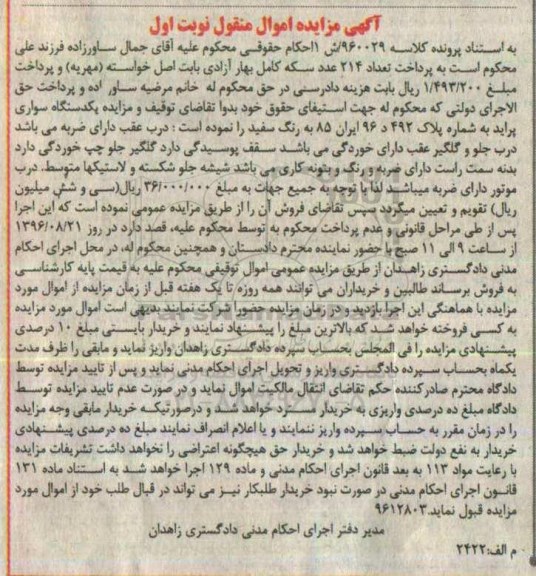 آگهی مزایده اموال منقول نوبت اول
به استناد پرونده کلاسه ۹۶۰۰۲۹/ش ۱احکام حقوقی محکوم علیه آقای جمال ساورزاده فرزند علی
محکوم است به پرداخت تعداد ۲۱۴ عدد سکه کامل بهار آزادی بابت اصل خواسته (مهریه) و پرداخت
مبلغ ۱/۴۹۳/۲۰۰ ریال بابت هزینه دادرسی در حق محکوم له خانم مرضیه ساور اده و پرداخت حق
الاجرای دولتی که محکوم له جهت استیفای حقوق خود بدوا تقاضای توقیف و مزایده یکدستگاه سواری
پراید به شماره پلاک ۴۹۲ د ۹۶ ایران ۸۵ به رنگ سفید را نموده است ؛ درب عقب دارای ضربه می باشد
درب جلو و گلگیر عقب دارای خوردگی می باشد سقف پوسیدگی دارد گلگیر جلو چپ خوردگی دارد
بدنه سمت راست دارای ضربه و رنگ و بتونه کاری می باشد شیشه جلو شکسته و لاستیکها متوسط، درب
موتور دارای ضربه میباشد لذا با توجه به جمیع جهات به مبلغ ۳۶/۰۰۰/۰۰۰ ریال(سی و شش میلیون
ریال) تقویم و تعیین میگردد سپس تقاضای فروش آن را از طریق مزایده عمومی نموده است که این اجرا
پس از طی مراحل قانونی و عدم پرداخت محکوم به توسط محکوم علیه، قصد دارد در روز ۱۳۹۶/۰۸/۲۱
از ساعت ۹ الی ۱۱ صبح با حضور نماینده محترم دادستان و همچنین محکوم له، در محل اجرای احکام
مدنی دادگستری زاهدان از طریق مزایده عمومی اموال توقیفی محکوم علیه به قیمت پایه کارشناسی
به فروش برساند طالبین و خریداران می توانند همه روزه تا یک هفته قبل از زمان مزایده از اموال مورد
مزایده با هماهنگی این اجرا بازدید و در زمان مزایده حضورا شرکت نمایند بدیهی است اموال مورد مزایده
به کسی فروخته خواهد شد که بالاترین مبلغ را پیشنهاد نمایند و خریدار بایستی مبلغ ۱۰ درصدی
پیشنهادی مزایده را فی المجلس بحساب سپرده دادگستری زاهدان واریز نماید و مابقی را ظرف مدت
یکماه بحساب سپرده دادگستری واریز و تحویل اجرای احکام مدنی نماید و پس از تایید مزایده توسط
دادگاه محترم صادرکننده حکم تقاضای انتقال مالکیت اموال نماید و در صورت عدم تایید مزایده توسط
دادگاه مبلغ ده درصدی واریزی به خریدار مسترد خواهد شد و درصورتیکه خریدار مابقی وجه مزایده
را در زمان مقرر به حساب سپرده واریز ننمایند و یا اعلام انصراف نمایند مبلغ ده درصدی پیشنهادی
خریدار به نفع دولت ضبط خواهد شد و خریدار حق هیچگونه اعتراضی را نخواهد داشت تشریفات مزایده
با رعایت مواد ۱۱۳ به بعد قانون اجرای احکام مدنی و ماده ۱۲۹ اجرا خواهد شد به استناد ماده ۱۳۱
قانون اجرای احکام مدنی در صورت نبود خریدار طلبکار نیز می تواند در قبال طلب خود از اموال مورد
مزایده قبول نماید.۹۶۱۲۸۰۳
مدیر دفتر اجرای احکام مدنی دادگستری زاهدان
م الف:۲۴۲۲